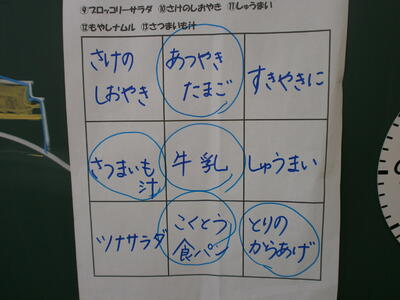 ⑨ブロッコリーサラダ ⑩さけのしおやき ⑪しゅうまい
⑫もやしナムル ⑬さつまいも汁
さけの
しおやき
あつやき
たまご
すきやきに
さつまいも
汁
牛乳
しゅうまい
ツナサラダ
こくとう
食パン
とりの
からあげ